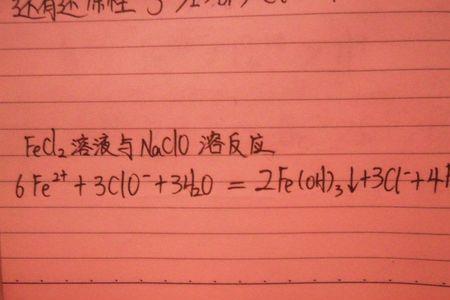 还有还原性
FeCl₂ 溶液与NaClO 溶反应
6Fe²⁺+3ClO⁻+3H₂O = 2Fe(OH)₃↓+3Cl⁻+4